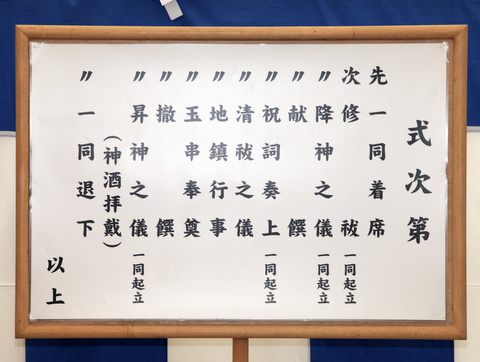 式次第
先一同着席
次修祓 一同起立
〃降神之儀 一同起立
〃献饌
〃祝詞奏上 一同起立
〃清祓之儀
〃地鎮行事
〃玉串奉奠
〃撤饌
〃昇神之儀 一同起立
(神酒拝戴)
〃一同退下
以上